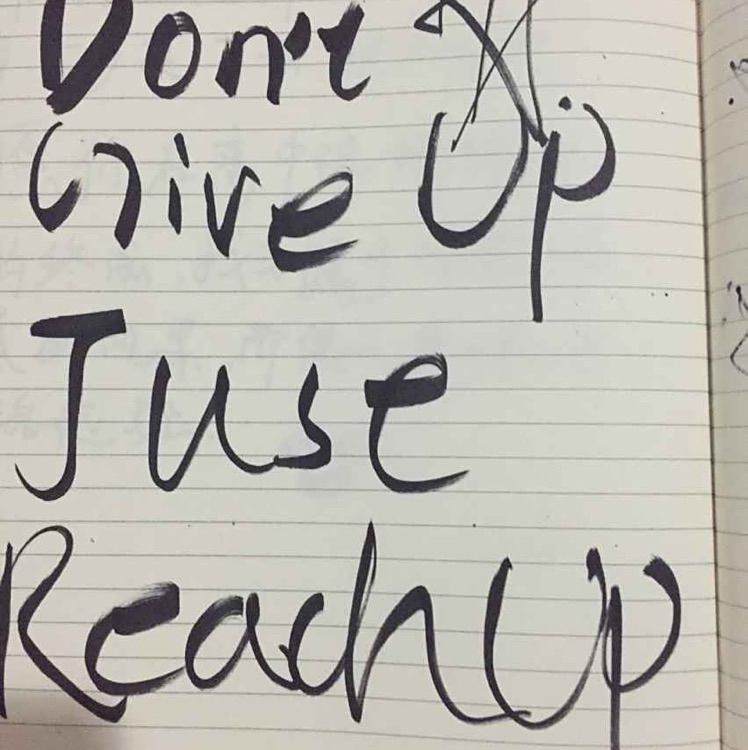 Don't
Give Up
Juse
Reach Up